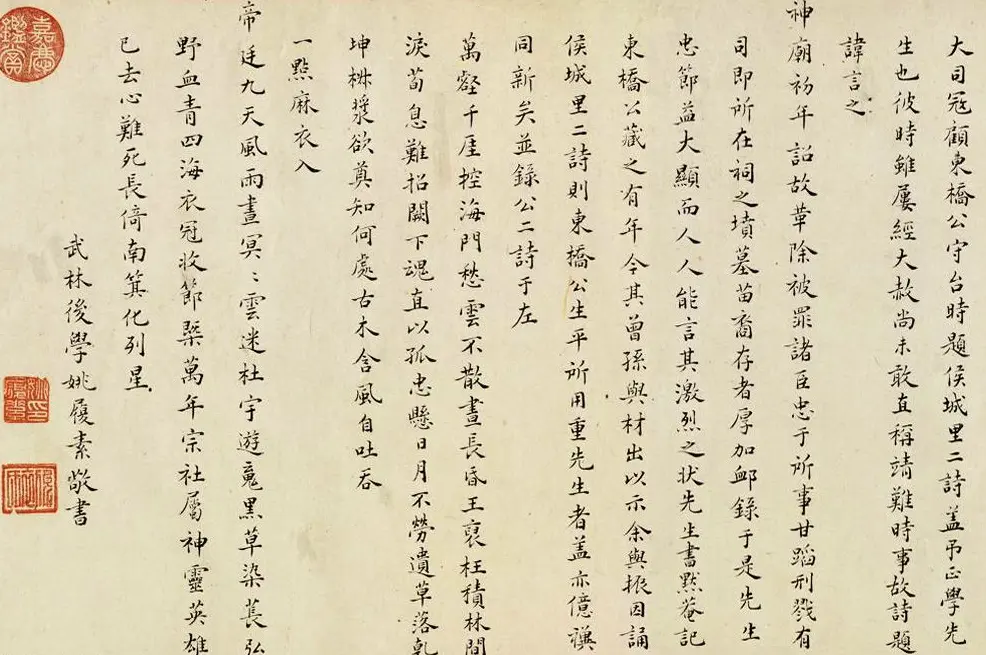 大司寇顧東橋公守台時題侯城里二詩蓋弔正學先
生也彼時雖屢經大赦尚未敢直稱靖難時事故詩題
諱言之
神廟初年詔故革除被罪諸臣忠于所事甘蹈刑戮有
司即所在祠之墳墓苗裔存者厚加卹錄于是先生
忠節益大顯而人人能言其激烈之狀先生書默菴記
東橋公藏之有年今其曾孫與材出以示余與振因誦
侯城里二詩則東橋公生平所用重先生者蓋亦億禩
同新矣並錄公二詩于左
萬壑千厓控海門愁雲不散晝長昏王裒枉積林間
淚荀息難招闕下魂直以孤忠懸日月不勞遺草落乾
坤椒漿欲奠知何處古木含風自吐吞
一點麻衣入
帝廷九天風雨晝冥〻雲迷杜宇遊魂黑草染萇弘
野血青四海衣冠收節槩萬年宗社屬神靈英雄
已去心難死長倚南箕化列星
武林後學姚履素敬書
嘉慶鑑賞